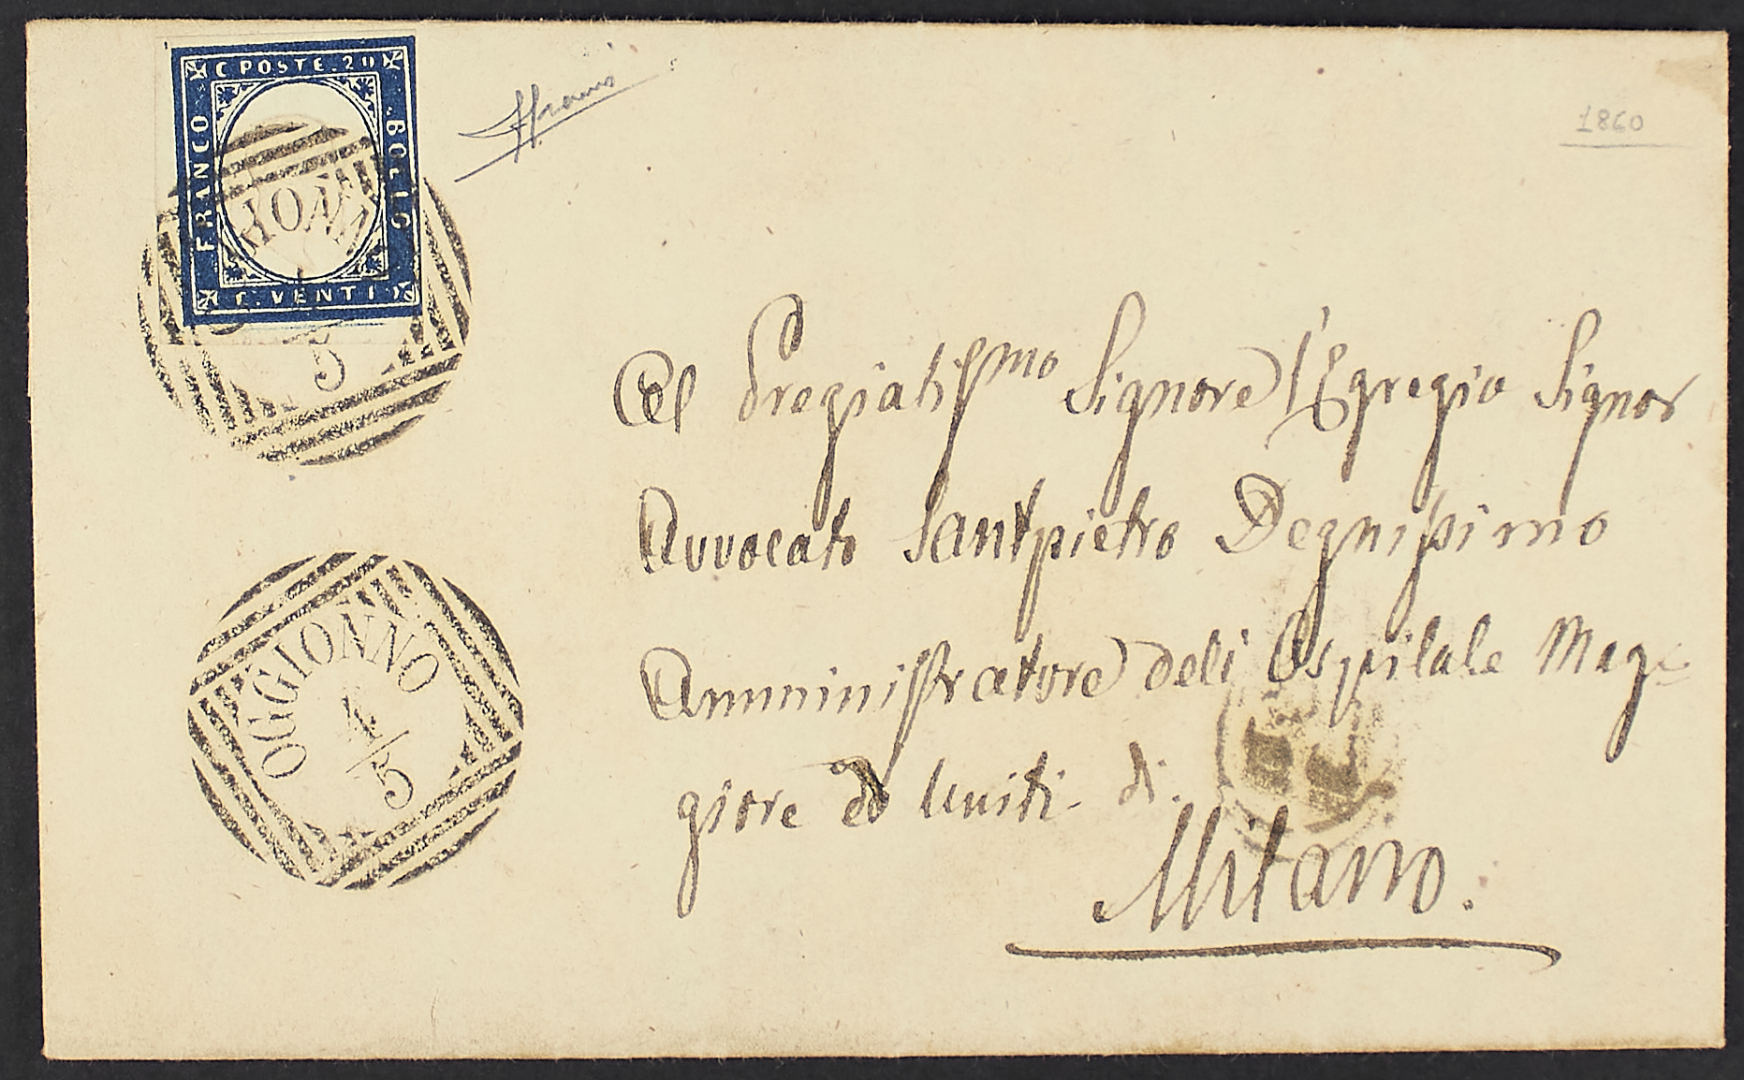 C POSTE. 20
FRANCO
BOLLO
C. VENTI
5
1860
Al Pregiatissmo Signore l'Egregio Signor
Avvocato Santpietro Degnissimo
Amministratore deli Ospitale Mag-
giore ed Uniti di
Milano.
OGGIONNO
4/5